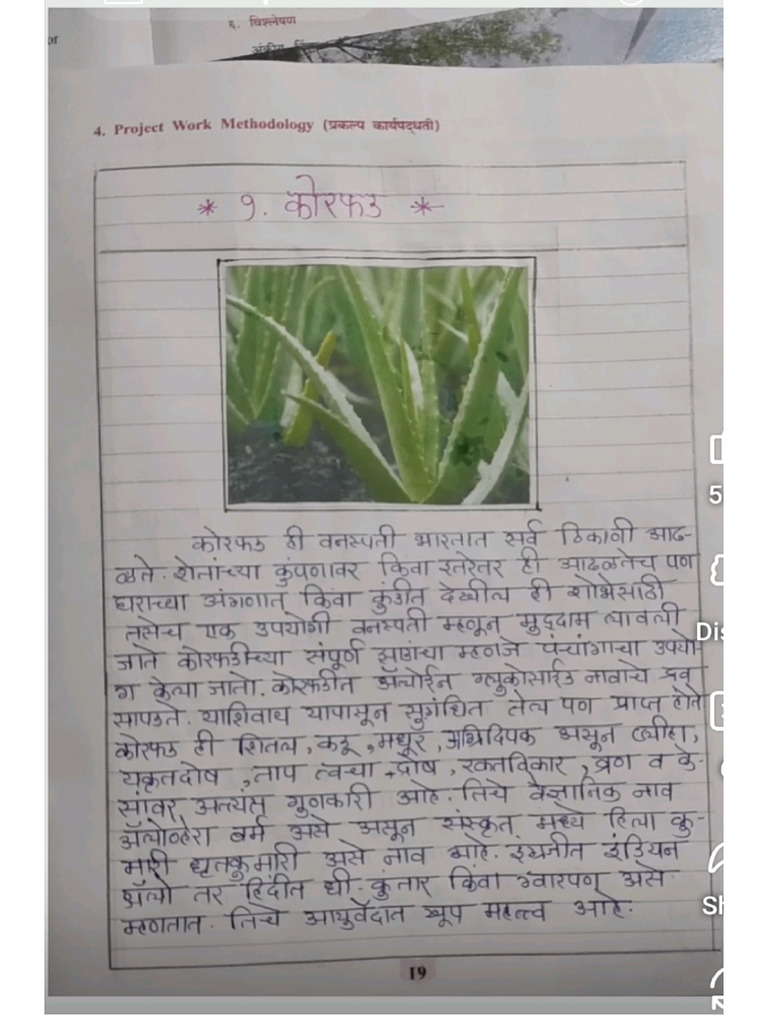 ६. विश्लेषण
4. Project Work Methodology (प्रकल्प कार्यपद्धती)
* १. कोरफड *
कोरफड ही वनस्पती भारतात सर्व ठिकाणी आढ-
ळते. शेतांच्या कुंपणावर किंवा इतरेतर ही आढळतेच पण
घराच्या अंगणात किंवा कुंडीत देखील ही शोभेसाठी
तसेच एक उपयोगी वनस्पती म्हणून मुद्दाम लावली
जाते कोरफडीच्या संपूर्ण झाडाचा म्हणजे पंचांगाचा उपयो-
ग केला जातो. कोरफडीत अ‍ॅलोईन ग्लुकोसाईड नावाचे द्रव
सापडते. याशिवाय यापासून सुगंधित तेल पण प्राप्त होते
कोरफड ही शितल, कडू, मधूर, अग्निदिपक असून प्लीहा,
यकृतदोष, ताप त्वचा दोष, रक्तविकार, व्रण व के-
सांवर अत्यंत गुणकारी आहे. तिचे वैज्ञानिक नाव
अ‍ॅलोव्हेरा बर्म असे असून संस्कृत मध्ये हिला कु-
मारी घृतकुमारी असे नाव आहे. इंग्रजीत इंडियन
अ‍ॅलो तर हिंदीत घी-कुंनार किंवा ग्वारपण असे
म्हणतात. तिचे आयुर्वेदात खूप महत्त्व आहे.
19